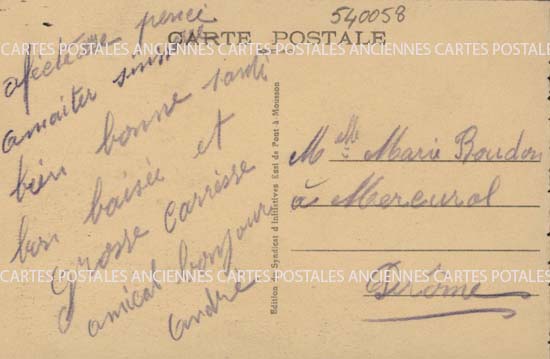 540058
CARTE POSTALE
CARTES POSTALES ANCIENNES CARTES POSTALES ANCIENNES CARTES POSTALES
afectueuse pensé
amaiter sinsère
bien bonne santé
bon baisée et
grosse carrèsse
amical bonjour
André
Edition - Syndicat d'Initiatives Essi de Pont à Mousson
Melle Marie Boudon
à Mercurol
Derôme
CARTES POSTALES ANCIENNES CARTES POSTALES ANCIENNES CARTES POSTALES